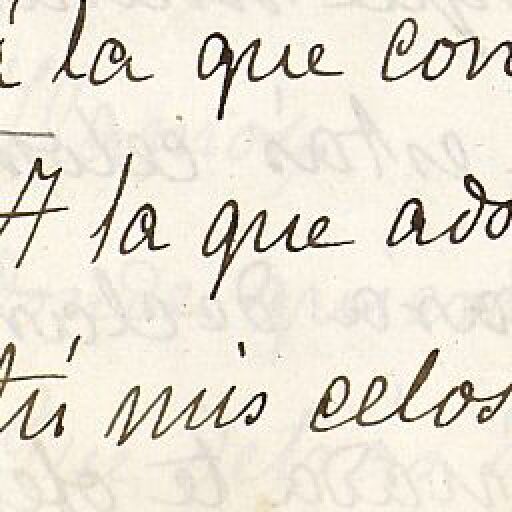 á la que con
A la que ado
tú mis celos